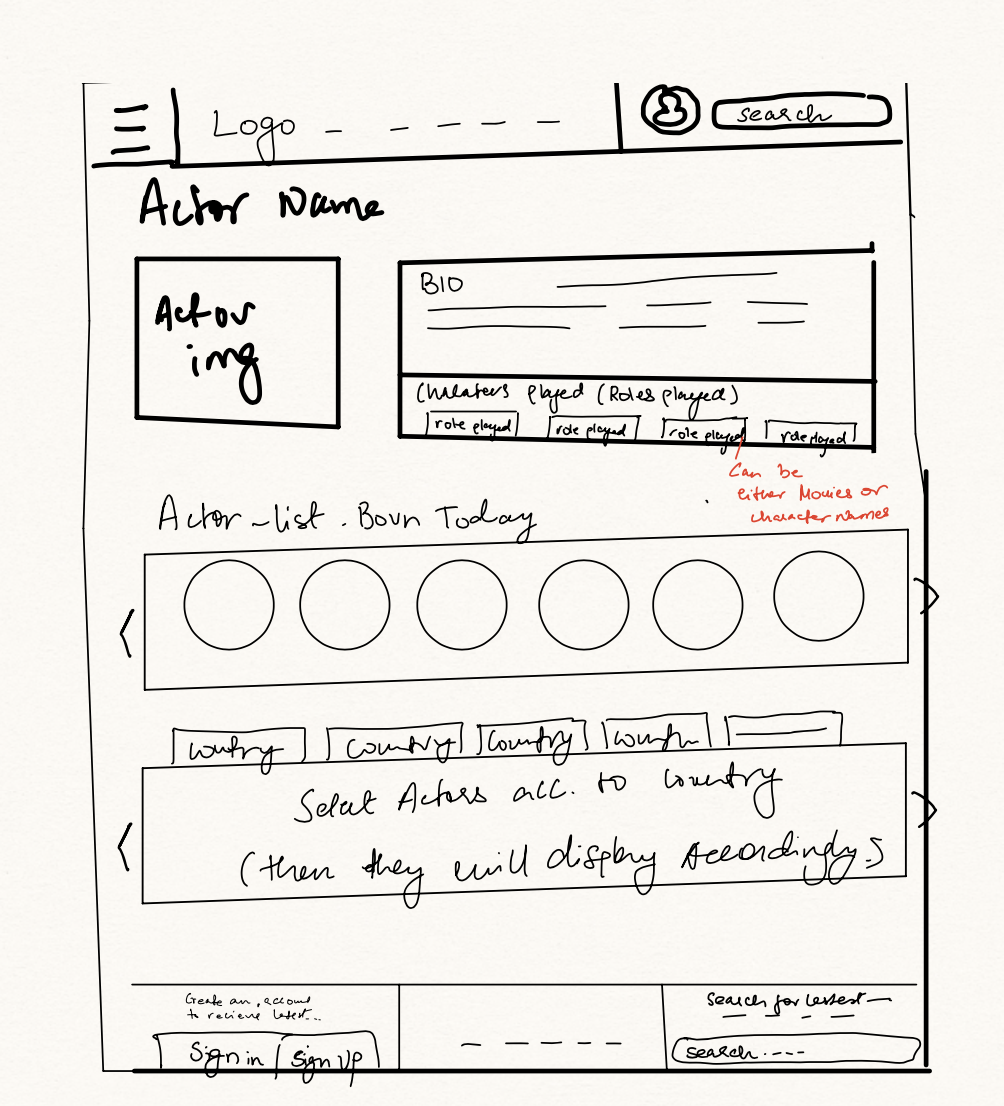 Logo
search
Actor Name
Actor
img
BIO
Charaters played (Roles played)
role played
role played
role played
role played
Can be
either Movies or
character names
Actor - list . Born Today
country
country
country
country
Select Actors acc. to country
(then they will display Accordingly.)
Create an account
to recieve latest...
Sign in
sign up
Search for latest
search ----